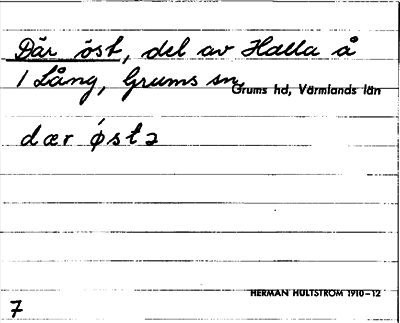 Där öst, del av Halla å
1 Lång, Grums sn,
Grums hd, Värmlands län
dær østə
HERMAN HULTSTRÖM 1910–12
7